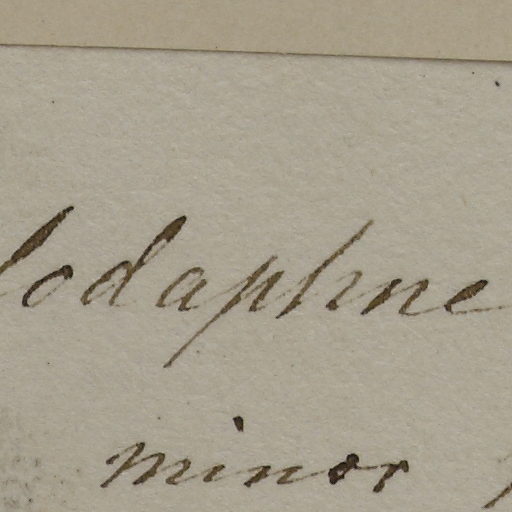 lodaphne
minor